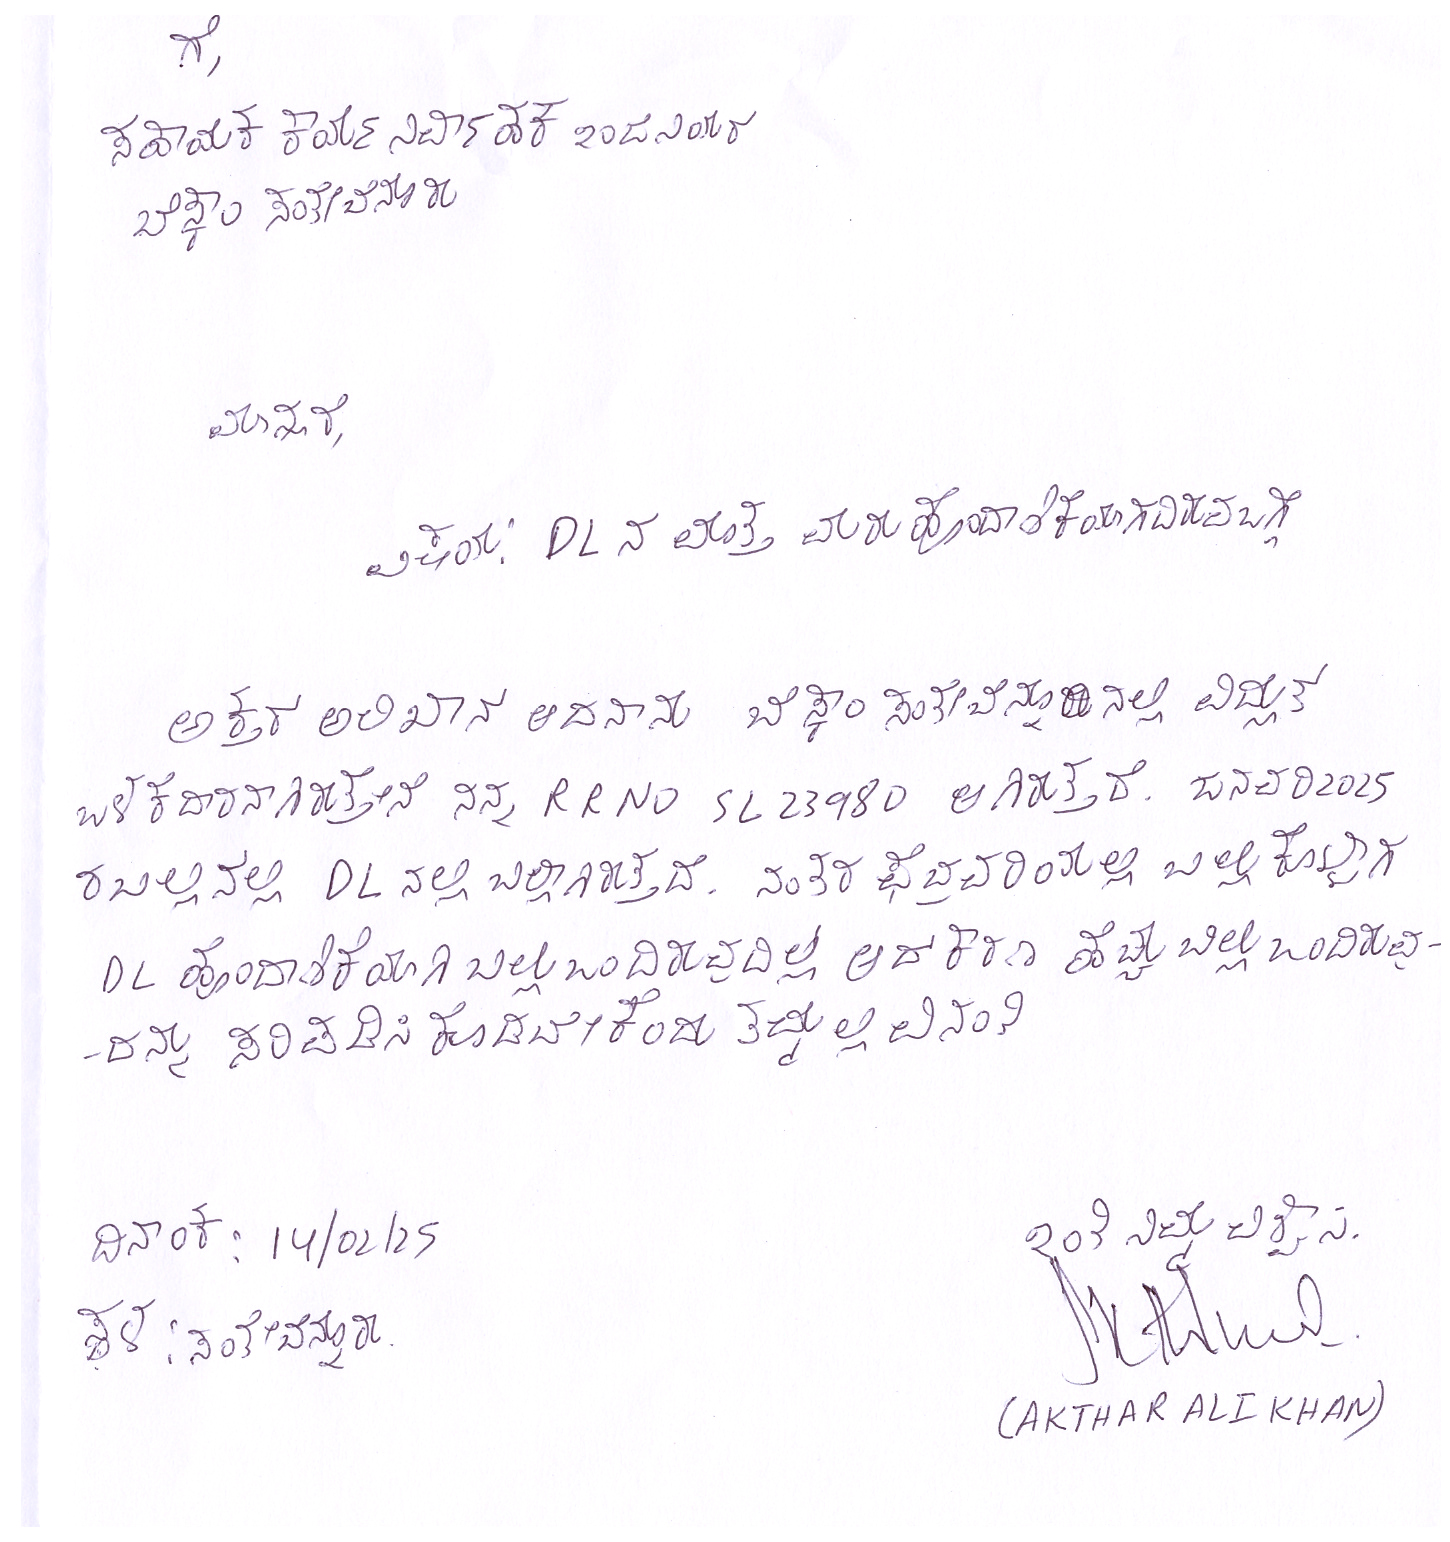 ಗೆ,
ಸಹಾಯಕ ಕಾರ್ಯ ನಿರ್ವಾಹಕ ಇಂಜಿನಿಯರ
ಬೆಸ್ಕಾಂ ಸಂತೇಬೆನೂರು
ಮಾನ್ಯರೆ,
ವಿಷಯ: DL ನ ಮೊತ್ತ ಮರುಹೊಂದಾಣಿಕೆಯಾಗದಿರುವ ಬಗ್ಗೆ
ಅಕ್ತರ ಅಲಿಖಾನ ಆದ ನಾನು ಬೆಸ್ಕಾಂ ಸಂತೇಬೆನ್ನೂರಿನಲ್ಲಿ ವಿದ್ಯುತ
ಬಳಕೆದಾರನಾಗಿರುತ್ತೇನೆ ನನ್ನ RRNO SL23980 ಆಗಿರುತ್ತದೆ. ಜನವರಿ 2025
ರ ಬಿಲ್ಲಿನಲ್ಲಿ DL ನಲ್ಲಿ ಬಿಲ್ಲಾಗಿರುತ್ತದೆ. ನಂತರ ಫೆಬ್ರವರಿಯಲ್ಲಿ ಬಿಲ್ಲು ಕೊಟ್ಟಾಗ
DL ಹೊಂದಾಣಿಕೆಯಾಗಿ ಬಿಲ್ಲು ಬಂದಿರುವುದಿಲ್ಲ ಆದ ಕಾರಣ ಹೆಚ್ಚು ಬಿಲ್ಲು ಬಂದಿರುವು-
-ದನ್ನು ಸರಿಪಡಿಸಿ ಕೊಡಬೇಕೆಂದು ತಮ್ಮಲ್ಲಿ ವಿನಂತಿ
ದಿನಾಂಕ: 14/02/25
ಸ್ಥಳ: ಸಂತೇಬೆನ್ನೂರು.
ಇಂತಿ ನಿಮ್ಮ ವಿಶ್ವಾಸಿ.
(AKTHAR ALI KHAN)